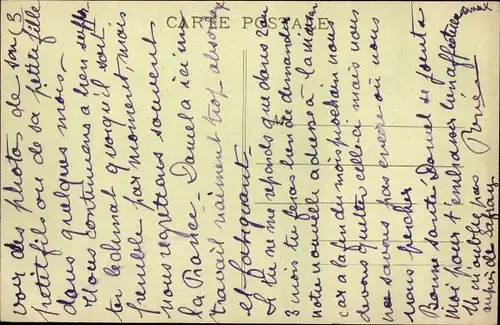 CARTE POSTALE
(3
voir des photos de son
petit fils ou de sa petite fille
dans quelques mois.
Nous continuons à bien suppor-
ter le climat quoiqu'il soit
pénible par moment, mais
nous regrettons souvent
la France. Daniel a ici un
travail vraiment trop absorbant
et fatigant.
Si tu ne me réponds que dans 2 ou
3 mois tu feras bien de demander
notre nouvelle adresse à la mission
car à la fin du mois prochain nous
devons quitter celle-ci mais nous
ne savons pas encore où nous
nous percher
Bonne santé Daniel se joint à
moi pour t'embrasser bien affectueu
sement
Renée
Ne m'oublies pas
auprès de